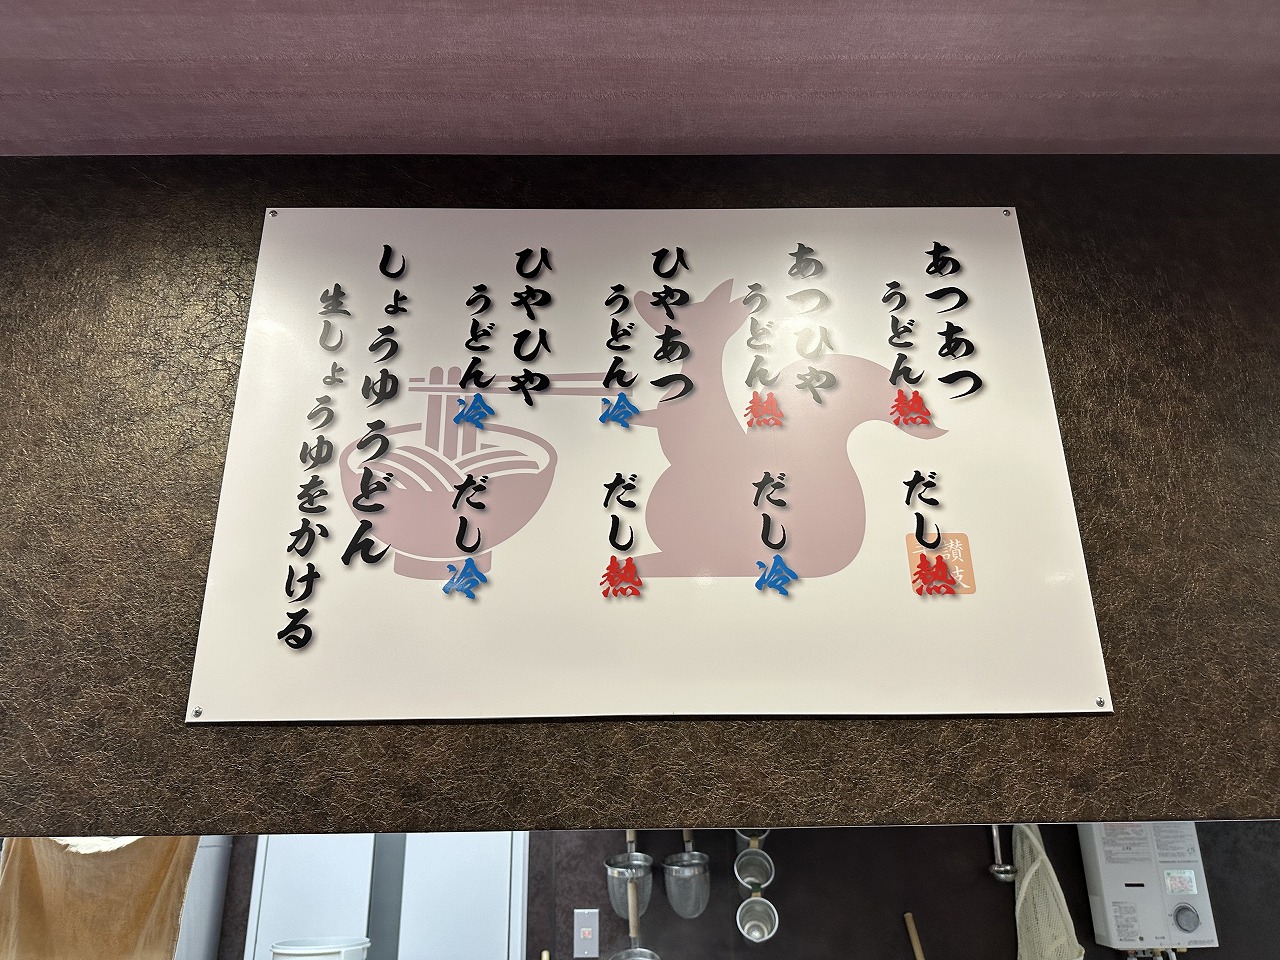 あつあつ
うどん熱 だし熱
あつひや
うどん熱 だし冷
ひやあつ
うどん冷 だし熱
ひやひや
うどん冷 だし冷
しょうゆうどん
生しょうゆをかける
讃岐